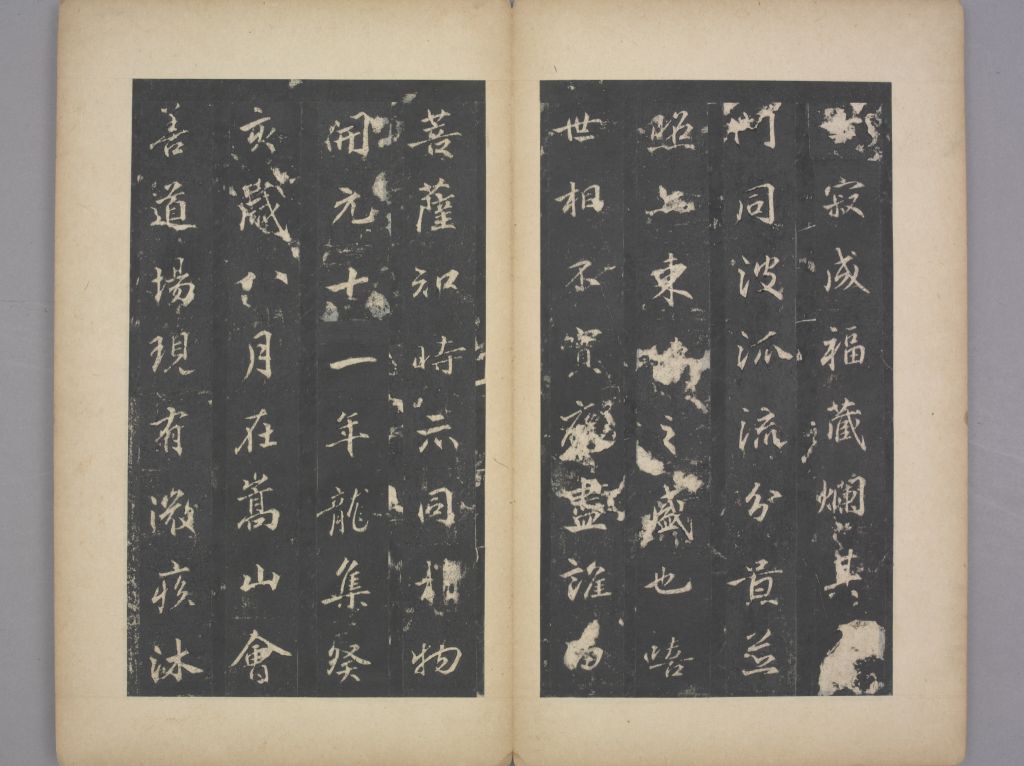 寂成福藏爛其
門同波派流分並
照上東之盛也嘻
世相不實盡誰留
菩薩知時示同相物
開元十一年龍集癸
亥歲八月在嵩山會
善道場現有微疾沐